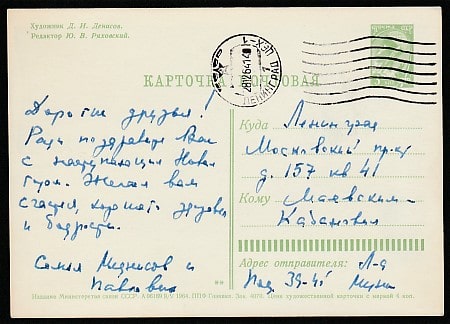 Художник Д. И. Денисов.
Редактор Ю. В. Ряховский.
КАРТОЧКА ПОЧТОВАЯ
ЛЕНИНГРАД
281264
Дорогие друзья!
Рады поздравить Вас
с наступающим Новым
годом. Желаем вам
счастья, хорошего здоровья
и бодрости.
Семья и
Куда Ленинград
Московский пр-кт
д. 157 кв 41
Кому Маявским-
Адрес отправителя: Л-д
39-41
Издание Министерства связи СССР. 1964. ППФ Гознака. Зак. Цена художественной карточки с маркой 4 коп.